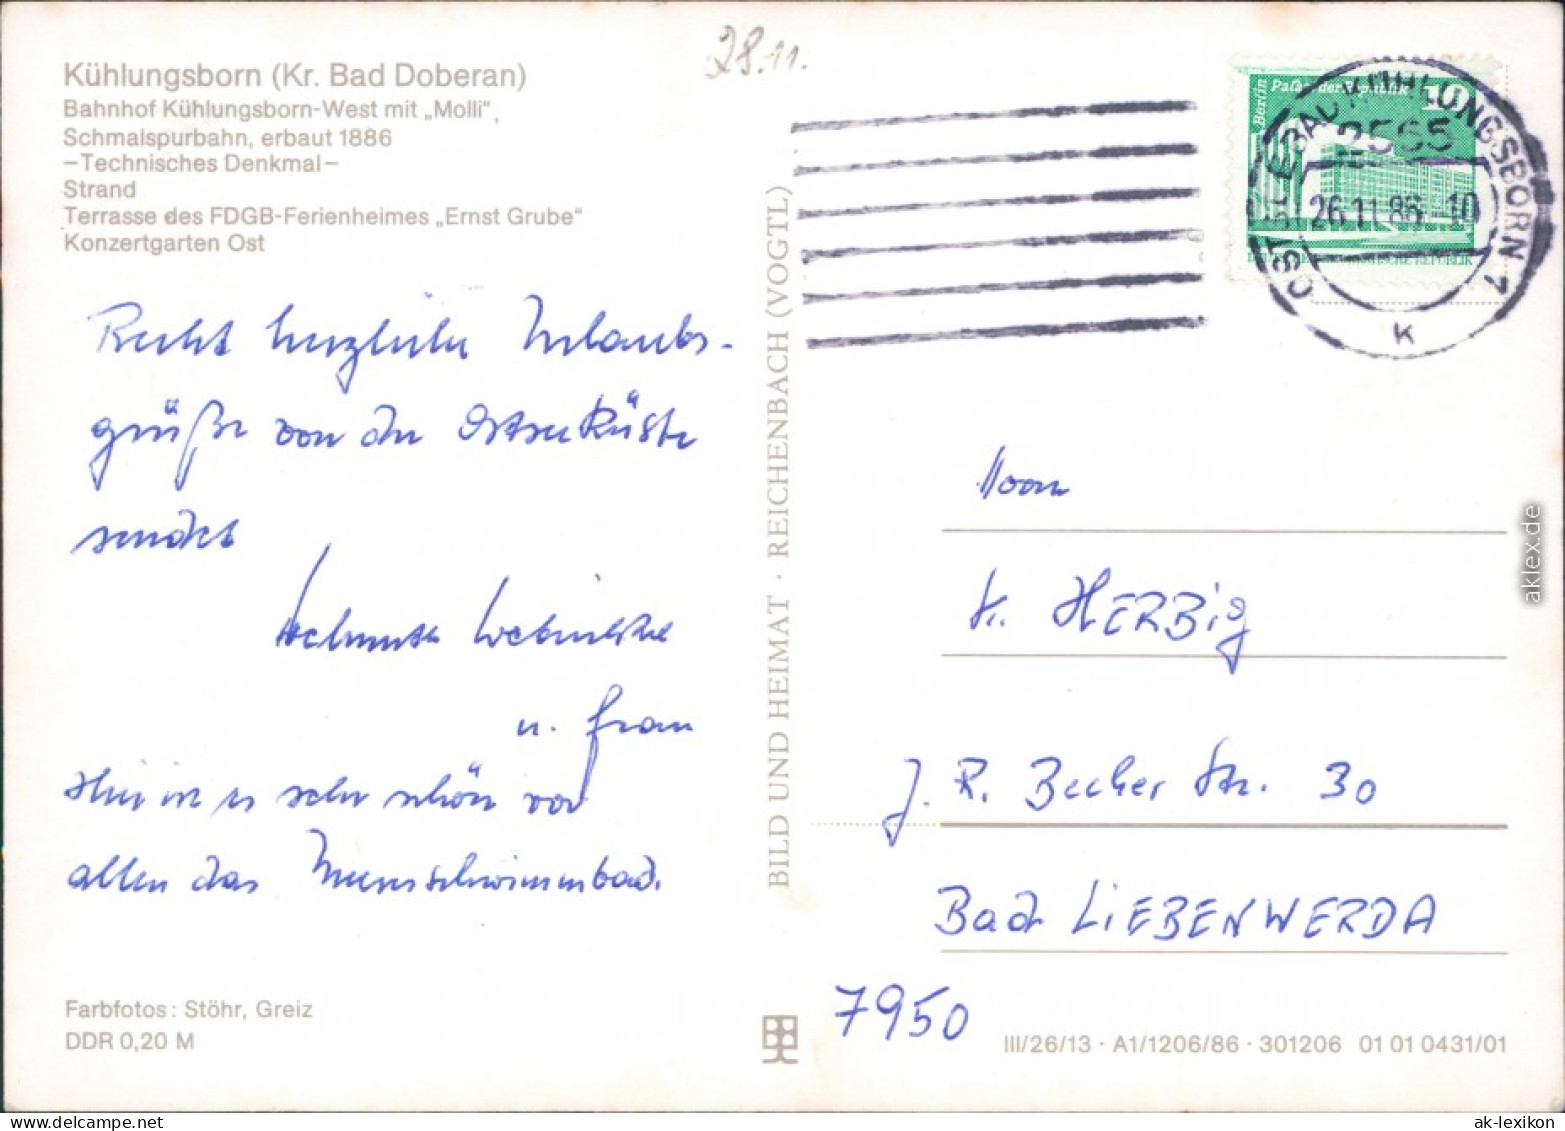 28.11.
Kühlungsborn (Kr. Bad Doberan)
Bahnhof Kühlungsborn-West mit „Molli",
Schmalspurbahn, erbaut 1886
–Technisches Denkmal–
Strand
Terrasse des FDGB-Ferienheimes „Ernst Grube"
Konzertgarten Ost
Recht herzliche Urlaubs-
grüße von der Ostseeküste
sendet
Helmut
u. Frau
Hier ist es sehr schön vor
allem das Meerschwimmbad.
Farbfotos: Stöhr, Greiz
DDR 0,20 M
BILD UND HEIMAT · REICHENBACH (VOGTL)
Berlin Palast der Republik 10
OSTSEEBAD KÜHLUNGSBORN 1
2565
26.11.86-10
K
HERBIG
J. R. Becher Str. 30
Bad LIEBENWERDA
7950
III/26/13 · A1/1206/86 · 301206 01 01 0431/01
aklex.de
ak-lexikon